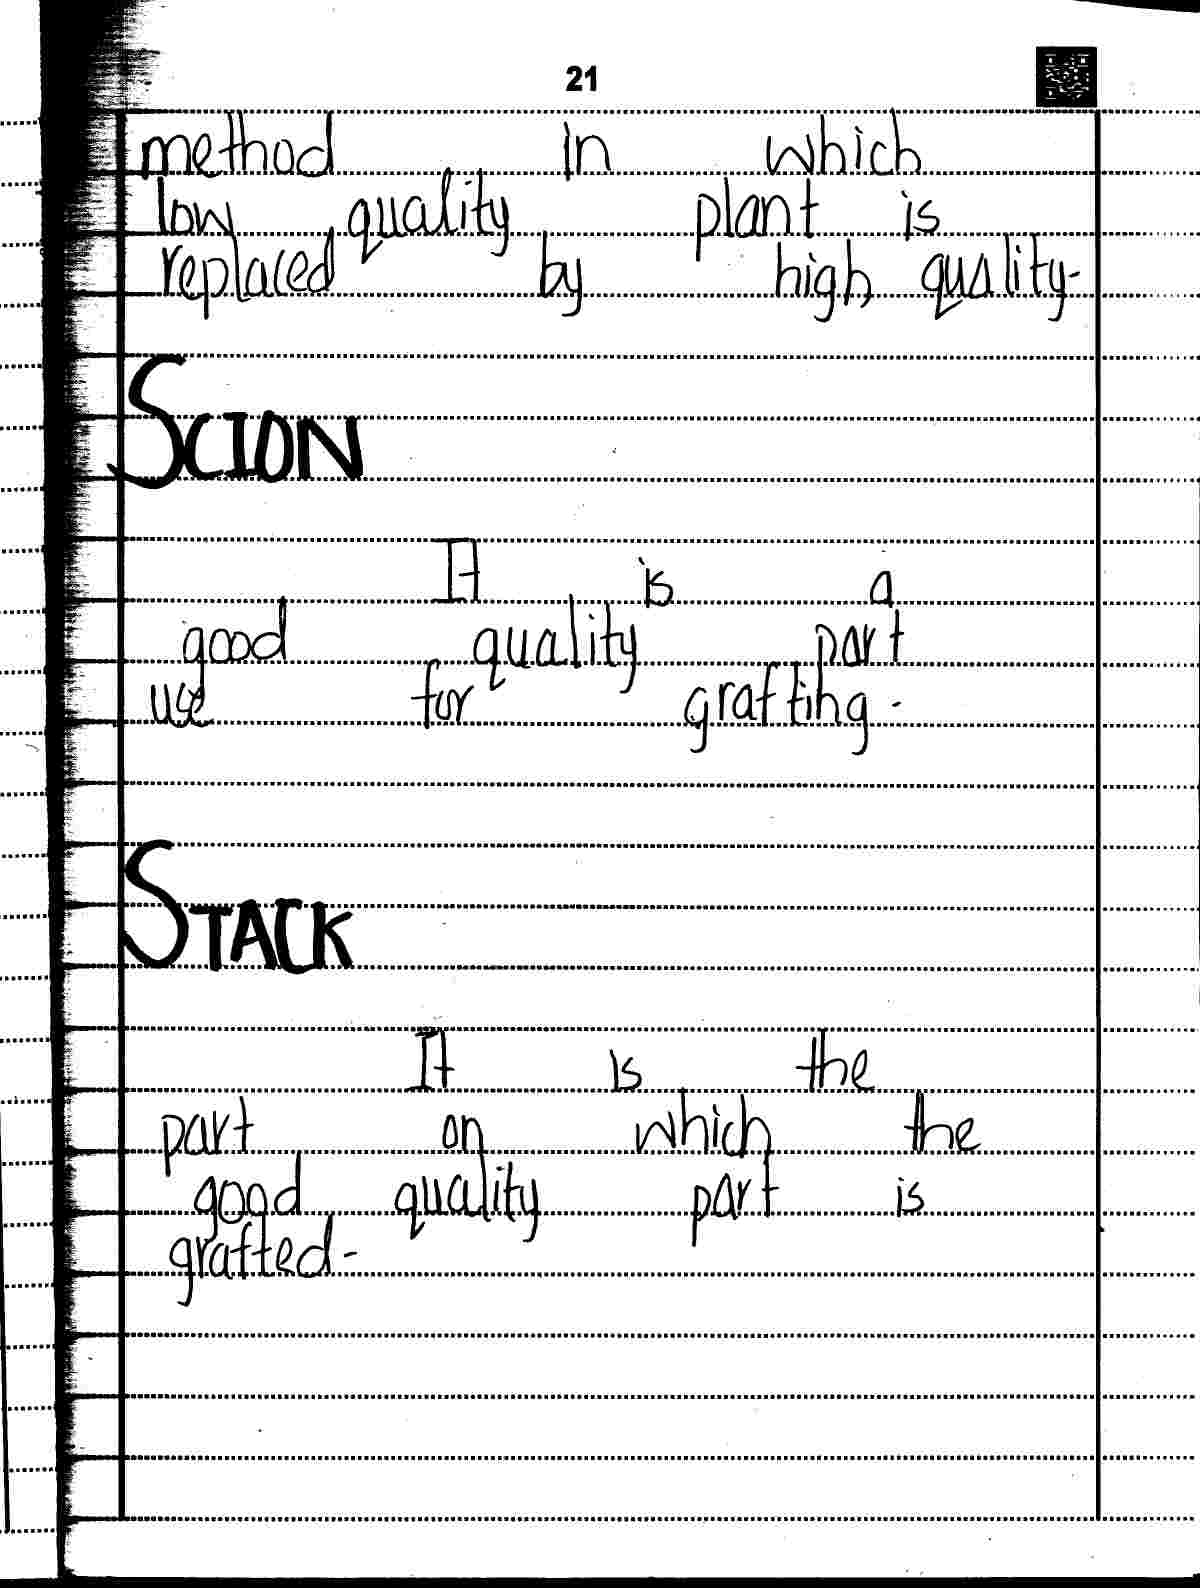 21
method in which
low quality plant is
replaced by high quality.
SCION
It is a
good quality part
use for grafting.
STACK
It is the
part on which the
good quality part is
grafted.